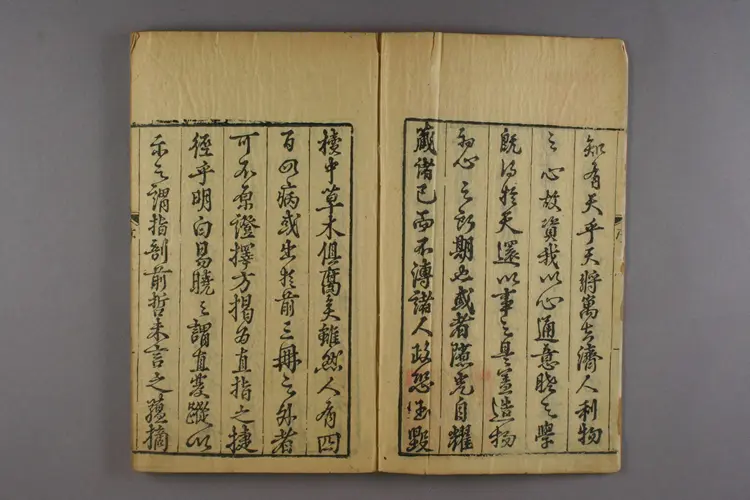 知有天乎天將寓其濟人利物
之心故資我以心通意曉之學
既得於天還以事之是寔造物
初心之所期也或者隱光自耀
藏諸己而不傳諸人政恐玉毀
櫝中草木俱腐矣雖然人有四
百四病或出於前三冊之外者
可不原證擇方揭為直指之捷
徑乎明白易曉之謂直發蹤以
示之謂指剖前哲未言之蘊摘